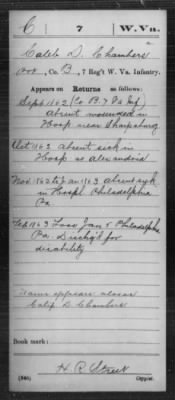 C 7 W.Va.
Caleb D. Chambers
Pvt, Co. B, 7 Reg't W. Va. Infantry.
Appears on Returns as follows:
Sept 1862 (Co B. 7 Va Inf)
absent wounded in
Hosp near Sharpsburg
Oct 1862 absent sick in
Hosp at Alexandria
Nov 1862 to Jan 1863 absent sick
in Hospl Philadelphia
Pa
1863 Loss Jan 5 Philadelphia
Pa. Dischg'd for
disability
Name appears also as
Calip D. Chambers
Book mark:
H. R. Street
(546) Copyist.